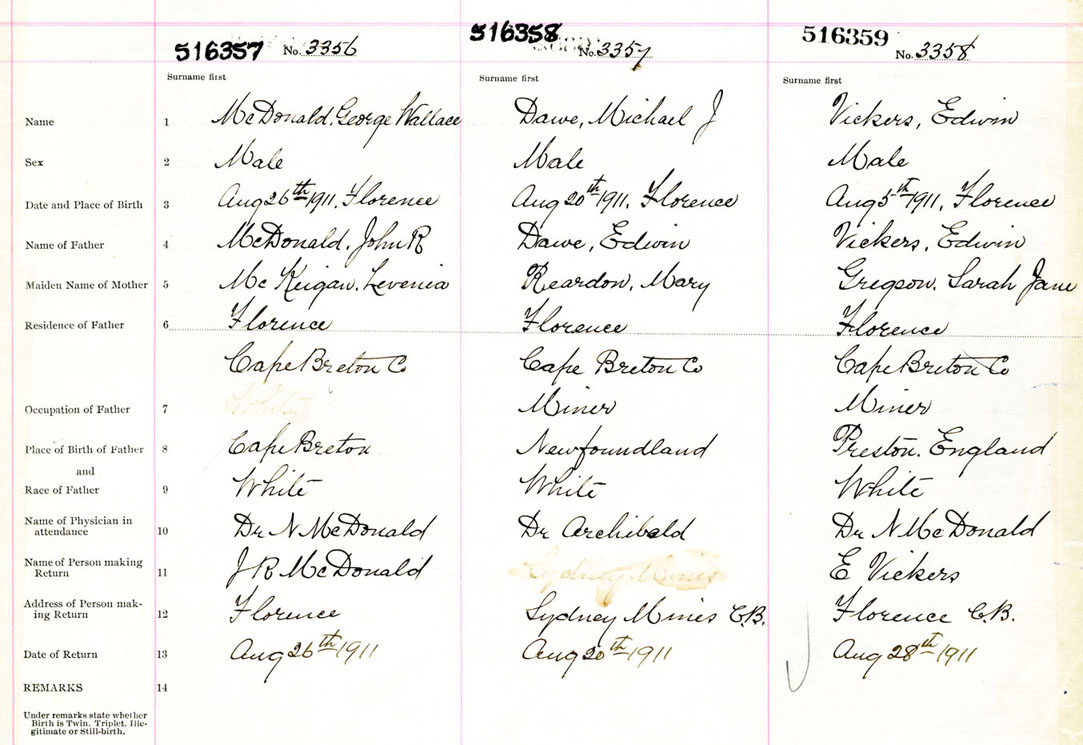 516357 No. 3356 516358 No. 3357 516359 No. 3358
Surname first Surname first Surname first
Name 1 McDonald, George Wallace Dawe, Michael J Vickers, Edwin
Sex 2 Male Male Male
Date and Place of Birth 3 Aug 26th 1911, Florence Aug 20th 1911, Florence Aug 5th 1911, Florence
Name of Father 4 McDonald, John R Dawe, Edwin Vickers, Edwin
Maiden Name of Mother 5 McKeigan, Levenia Reardon, Mary Gregson, Sarah Jane
Residence of Father 6 Florence Florence Florence
Cape Breton Co Cape Breton Co Cape Breton Co
Occupation of Father 7 White Miner Miner
Place of Birth of Father 8 Cape Breton Newfoundland Preston, England
and
Race of Father 9 White White White
Name of Physician in
attendance 10 Dr N McDonald Dr Archibald Dr N McDonald
Name of Person making
Return 11 J R McDonald Sydney Mines E Vickers
Address of Person mak-
ing Return 12 Florence Sydney Mines C.B. Florence C.B.
Date of Return 13 Aug 26th 1911 Aug 20th 1911 Aug 28th 1911
REMARKS 14
Under remarks state whether
Birth is Twin, Triplet, Ille-
gitimate or Still-birth.